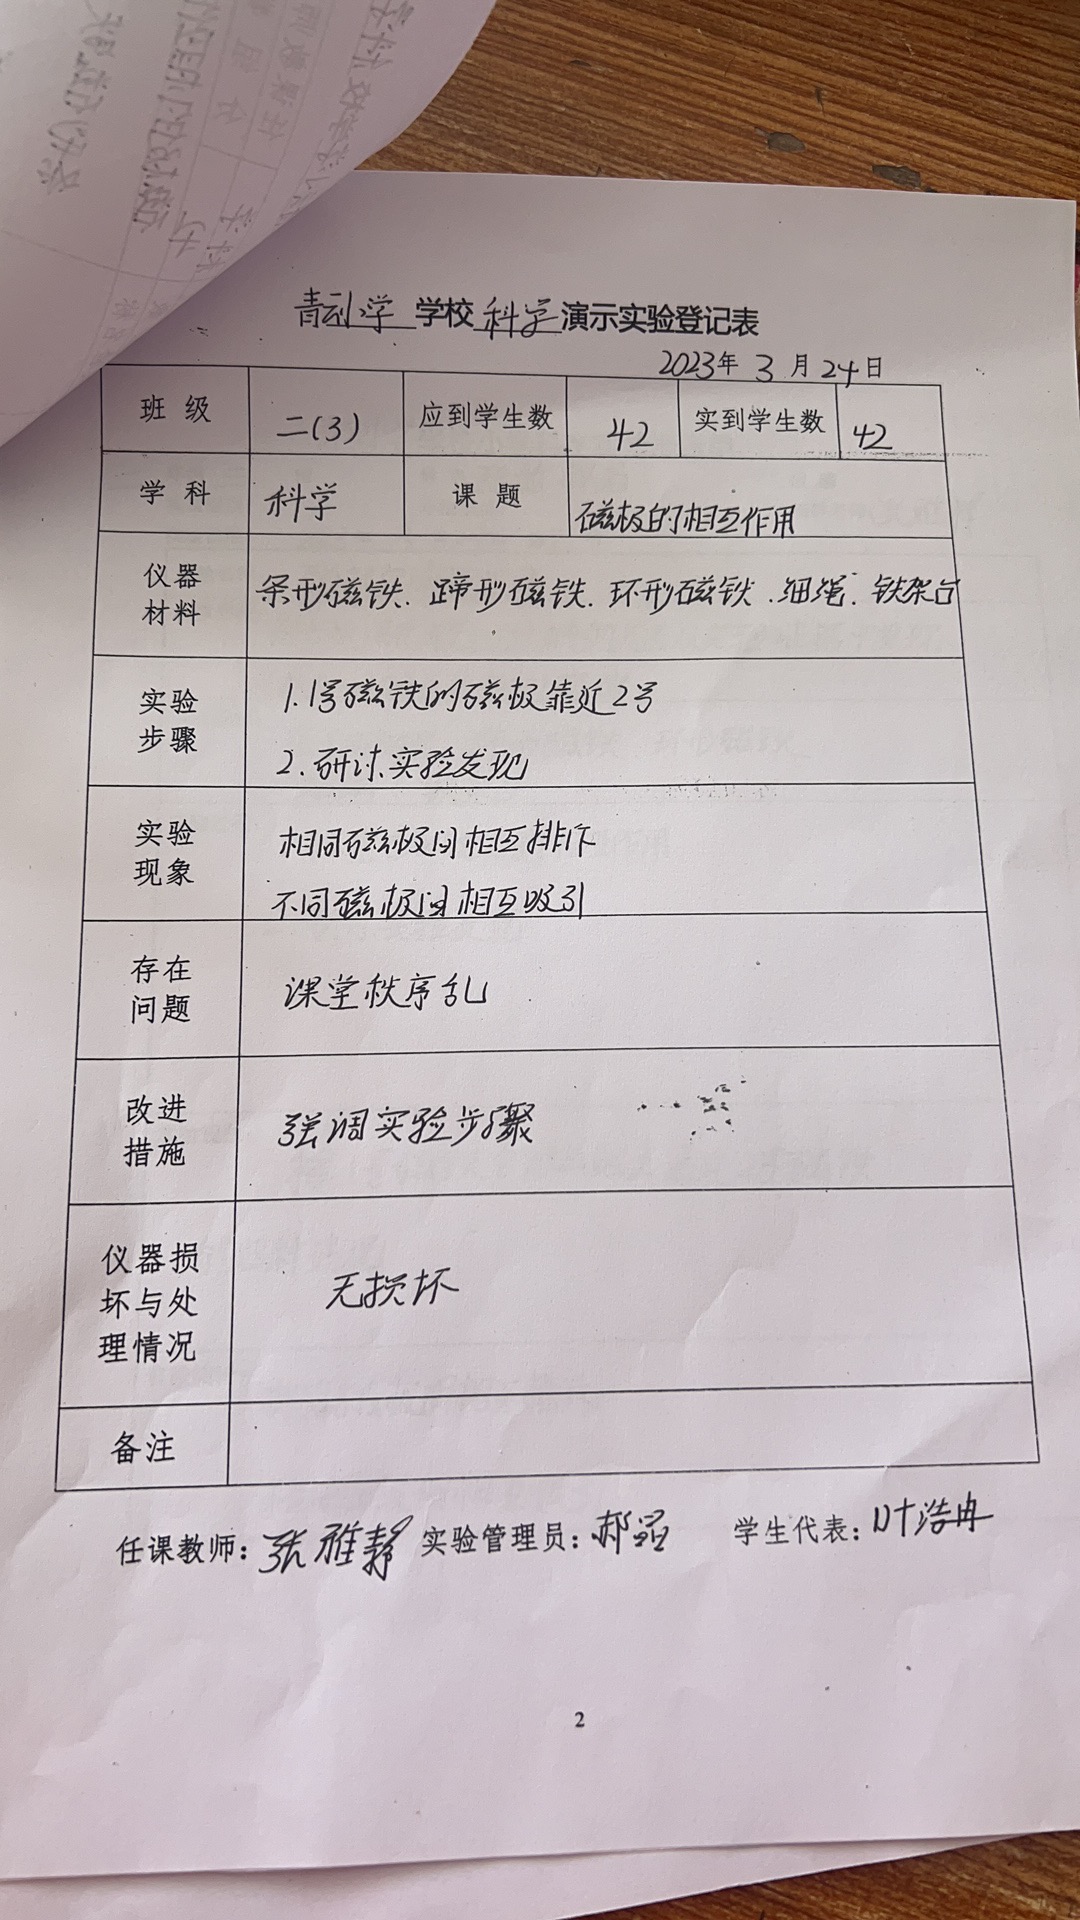 学校科学演示实验登记表
2023年 3 月 24 日
班 级 二(3) 应到学生数 42 实到学生数 42
学 科 科学 课 题 磁极的相互作用
仪器材料 条形磁铁. 蹄形磁铁. 环形磁铁.细绳. 铁架台
实验步骤 1. 1号磁铁的磁极靠近2号
2. 研讨实验发现
实验现象 相同磁极间相互排斥
不同磁极间相互吸引
存在问题 课堂秩序乱
改进措施 强调实验步骤
仪器损坏与处理情况 无损坏
备注
任课教师: 张雅静 实验管理员: 郝 学生代表: 叶浩冉
2